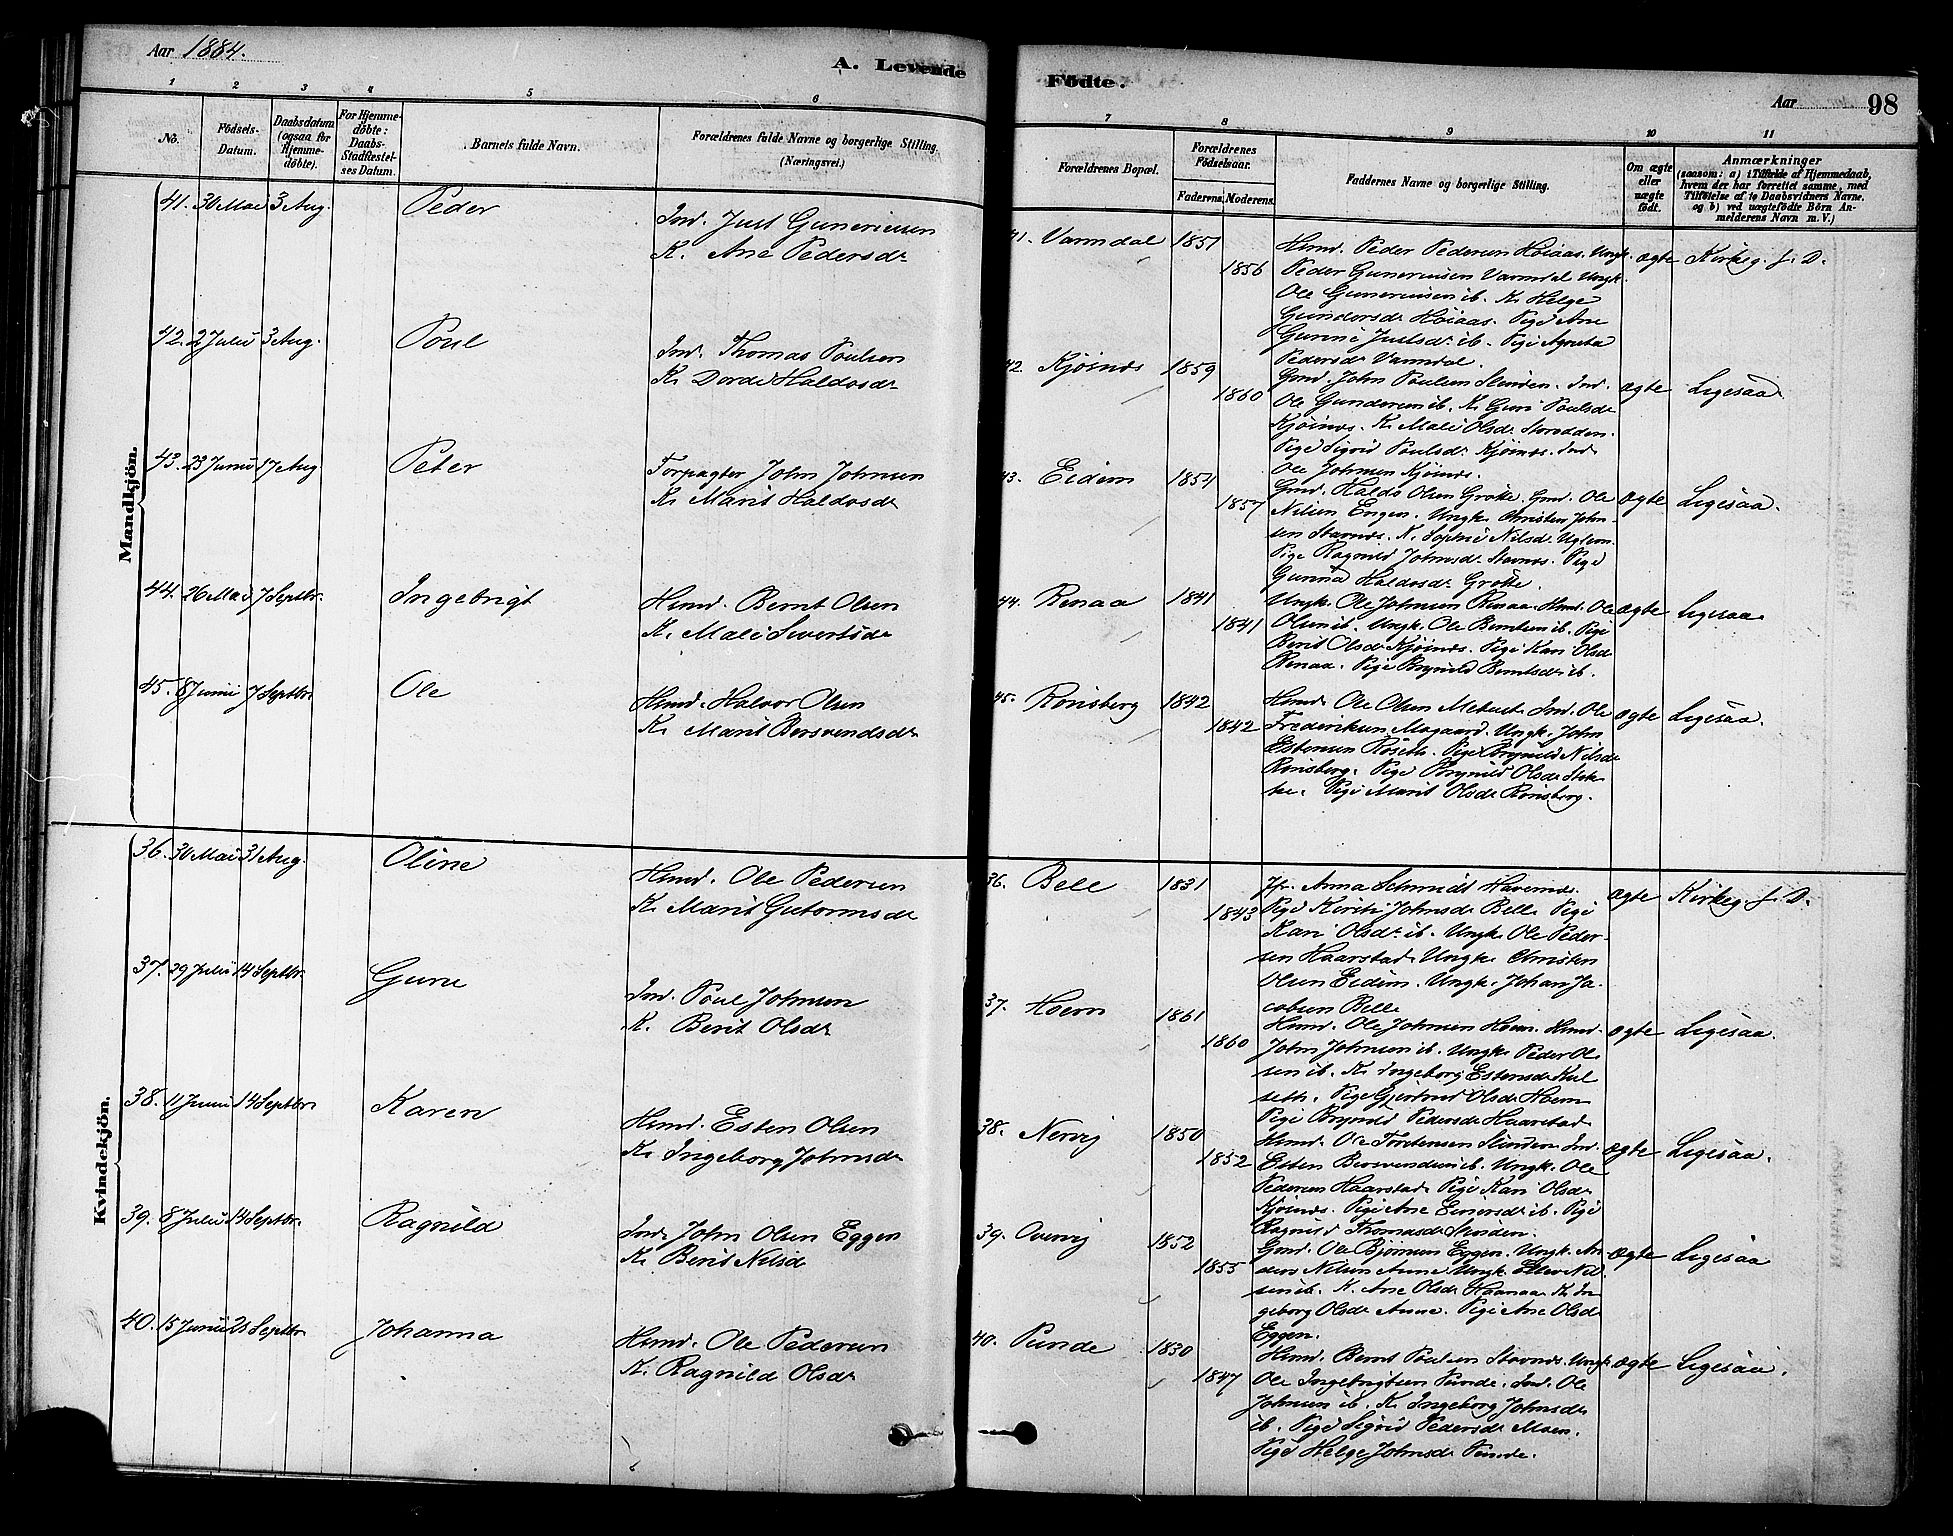 Aar 1884.
A. Levende
Fødte.
Aar 98
1 2 3 4 5 6
7 8 9 10 11
No.
Fødsels-
Datum.
Daabsdatum
(ogsaa for
Hjemme-
døbte).
For Hjemme-
døbte:
Daabs-
Stadfæstel-
ses Datum.
Barnets fulde Navn.
Forældrenes fulde Navne og borgerlige Stilling
(Næringsvei.)
Forældrenes Bopæl.
Forældrenes
Fødselsaar.
Faderens. Moderens.
Faddernes Navne og borgerlige Stilling.
Om ægte
eller
uægte
født.
Anmærkninger
(saasom: a) i Tilfælde af Hjemmedaab,
hvem der har forrettet samme, med
Tilføielse af to Daabsvidners Navne.
og b) ved uægtefødte Børn An-
melderens Navn m. V.)
Mandkjön.
41. 30 Mai 3 Aug. Peder
Ind. Just Guneriusen
K. Ane Pedersdr
41. Varmdal 1851
1856
Hmd. Peder Pedersen Høiaas. Ungk.
Peder Guneriussen Varmdal. Ungk.
Ole Guneriussen ib. K. Helge
Gundersdr Høiaas. Pige Ane
Gurine Justsdr ib. Pige Agneta
Pedersdr Varmdal.
ægte Kirkeg. f. D.
42. 2 Julii 3 Aug. Poul
Ind. Thomas Poulsen
K. Dorde Haldosdr
42 Kjøsnæs 1859
1860
Gmd. John Poulsen Slinden. Ind.
Ole Gundersen ib. K. Guri Poulsdr
Kjøsnæs. K. Mali Olsdr Storødden.
Pige Sigrid Poulsdr Kjøsnæs. Ind.
Ole Johnsen Kjøsnæs.
ægte Ligesaa
43. 23 Junii 17 Aug Peter
Forpagter John Johnsen
K. Marit Haldosdr
43. Eidem 1854
1857
Gmd. Haldo Olsen Grøtte. Gmd. Ole
Nilsen Engen. Ungk. Christen John-
sen Stavnæs. K. Sophie Nilsdr Uglem.
Pige Ragnild Johnsdr Stavnæs. Pige
Gunna Haldosdr Grøtte.
ægte Ligesaa.
44. 26 Mai 7 Septbr. Ingebrigt
Hmd. Bernt Olsen
K. Mali Sivertsdr
44. Renaa 1841
1841
Ungk. Ole Johnsen Renaa. Hmd. Ole
Olsen ib. Ungk. Ole Berntsen ib. Pige
Berit Olsdr Kjøsnæs. Pige Kari Olsdr
Renaa. Pige Ragnild Berntsdr ib.
ægte Ligesaa
45. 8 Junii 7 Septbr. Ole
Hmd. Halvor Olsen
K. Marit Bersvendsdr
45. Rønsberg 1842
1842
Hmd. Ole Olsen . Ind. Ole
Frederiksen Mogaard. Ungk. John
Estensen Røset. Pige Ragnild Nilsdr
Rønsberg. Pige Ragnild Olsdr
Pige Marit Olsdr Rønsberg.
ægte Ligesaa.
Kvindekjön.
36. 30 Mai 31 Aug. Oline
Hmd. Ole Pedersen
K. Marit Gutormsdr
36. Bell 1831
1843
Jfr. Anna Schmidt Havernæs.
Pige Kirsti Johnsdr Bell. Pige
Kari Olsdr ib. Ungk. Ole Peder-
sen Haarstad. Ungk. Christen
Olsen Eidem. Ungk. Johan Ja-
cobsen Bell.
ægte Kirkeg. f. D.
37. 29 Julii 14 Septbr. Guru
Ind. Poul Johnsen
K. Berit Olsdr
37. Hoem 1861
1860
Hmd. Ole Johnsen Hoem. Hmd.
John Johnsen ib. Ungk. Peder Ol-
sen ib. K. Ingeborg Estensdr Kul-
seth. Pige Gjertrud Olsdr Hoem
Pige Ragnild Pedersdr Haarstad.
ægte Ligesaa.
38. 11 Junii 14 Septbr. Karen
Hmd. Esten Olsen
K. Ingeborg Johnsdr
38. Nervig 1850
1852
Hmd. Ole Torstensen Slinden. Ind.
Esten Bersvendsen ib. Ungk. Ole
Pedersen Haarstad. Pige Kari Olsdr
Kjøsnæs. Pige Ane Einersdr ib. Pige
Ragnild Thomasdr Slinden.
ægte Ligesaa.
39. 8 Julii 14 Septbr. Ragnild
Ind. John Olsen Eggen
K. Berit Nilsdr
39. Overvig 1852
1855
Gmd. Ole Bjørnsen Eggen. Ungk. An-
ders Nilsen Aune. Ungk. Eller Nil-
sen ib. K. Ane Olsdr Haanaa. K. In-
geborg Olsdr Aune. Pige Ane Olsdr
Eggen.
ægte Ligesaa
40. 15 Junii 21 Septbr. Johanna
Hmd. Ole Pedersen
K. Ragnild Olsdr
40. Punde 1830
1847
Hmd. Bernt Poulsen Stavnæs. Ungk.
Ole Ingebrigtsen Punde. Ind. Ole
Johnsen ib. K. Ingeborg Johnsdr
ib. Pige Sigrid Pedersdr Moen.
Pige Helge Johnsdr Punde.
ægte Ligesaa.